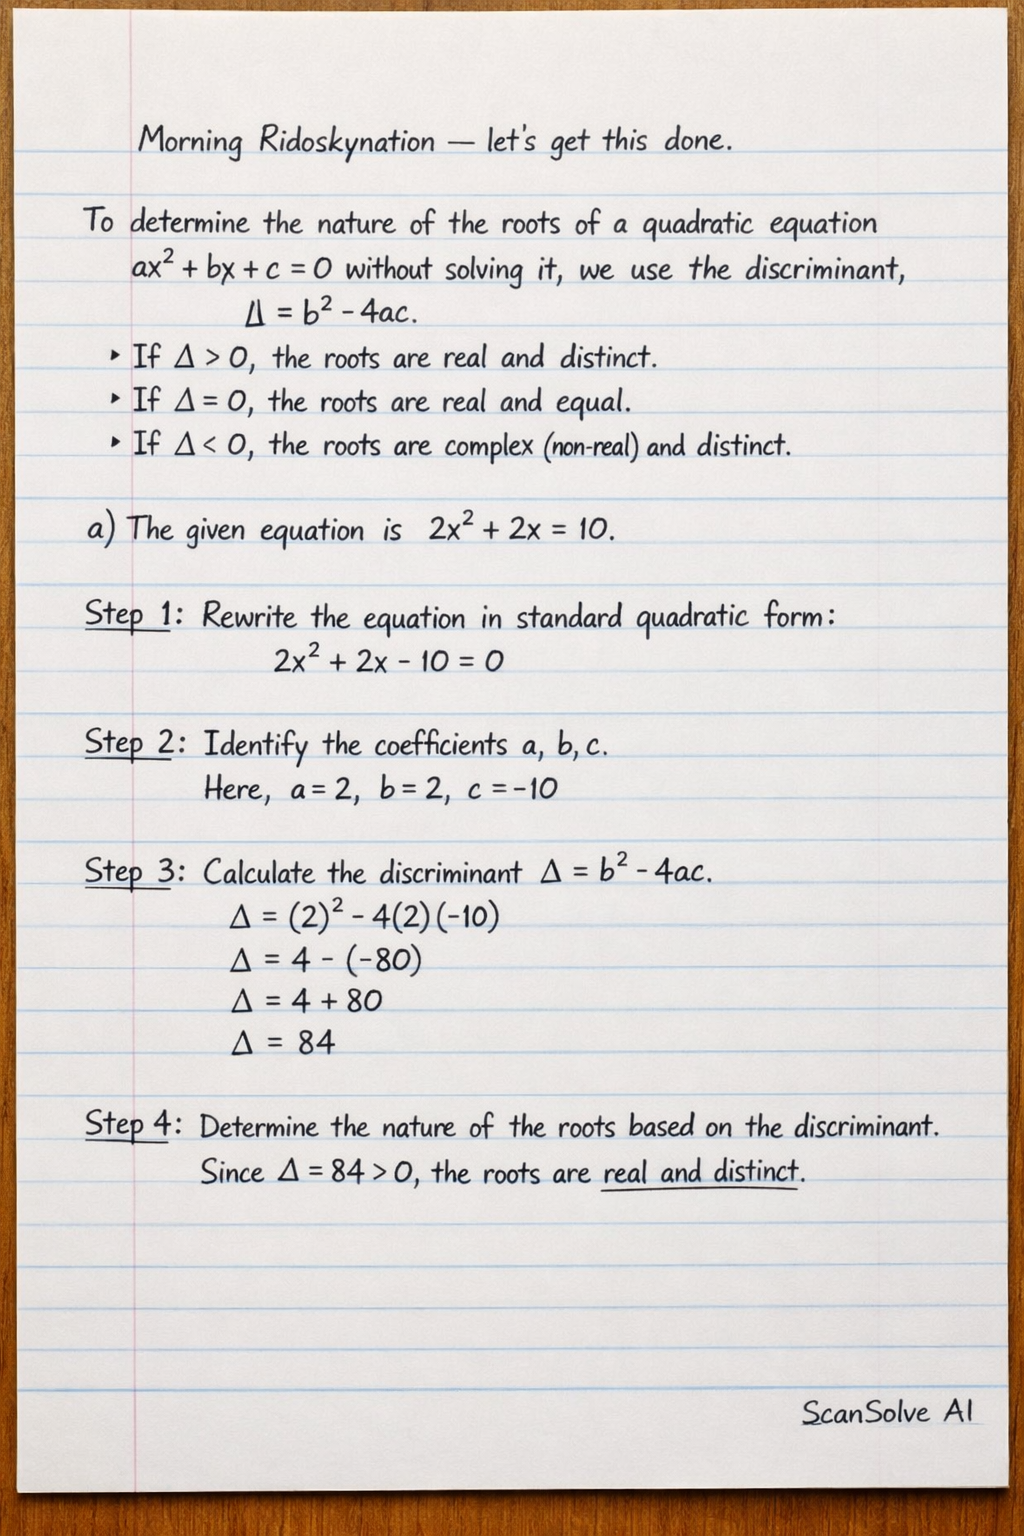 Morning Ridoskynation — let's get this done.
To determine the nature of the roots of a quadratic equation
ax² + bx + c = 0 without solving it, we use the discriminant,
Δ = b² - 4ac.
‣ If Δ > 0, the roots are real and distinct.
‣ If Δ = 0, the roots are real and equal.
‣ If Δ < 0, the roots are complex (non-real) and distinct.
a) The given equation is 2x² + 2x = 10.
Step 1: Rewrite the equation in standard quadratic form:
2x² + 2x - 10 = 0
Step 2: Identify the coefficients a, b, c.
Here, a = 2, b = 2, c = -10
Step 3: Calculate the discriminant Δ = b² - 4ac.
Δ = (2)² - 4(2)(-10)
Δ = 4 - (-80)
Δ = 4 + 80
Δ = 84
Step 4: Determine the nature of the roots based on the discriminant.
Since Δ = 84 > 0, the roots are real and distinct.
ScanSolve AI